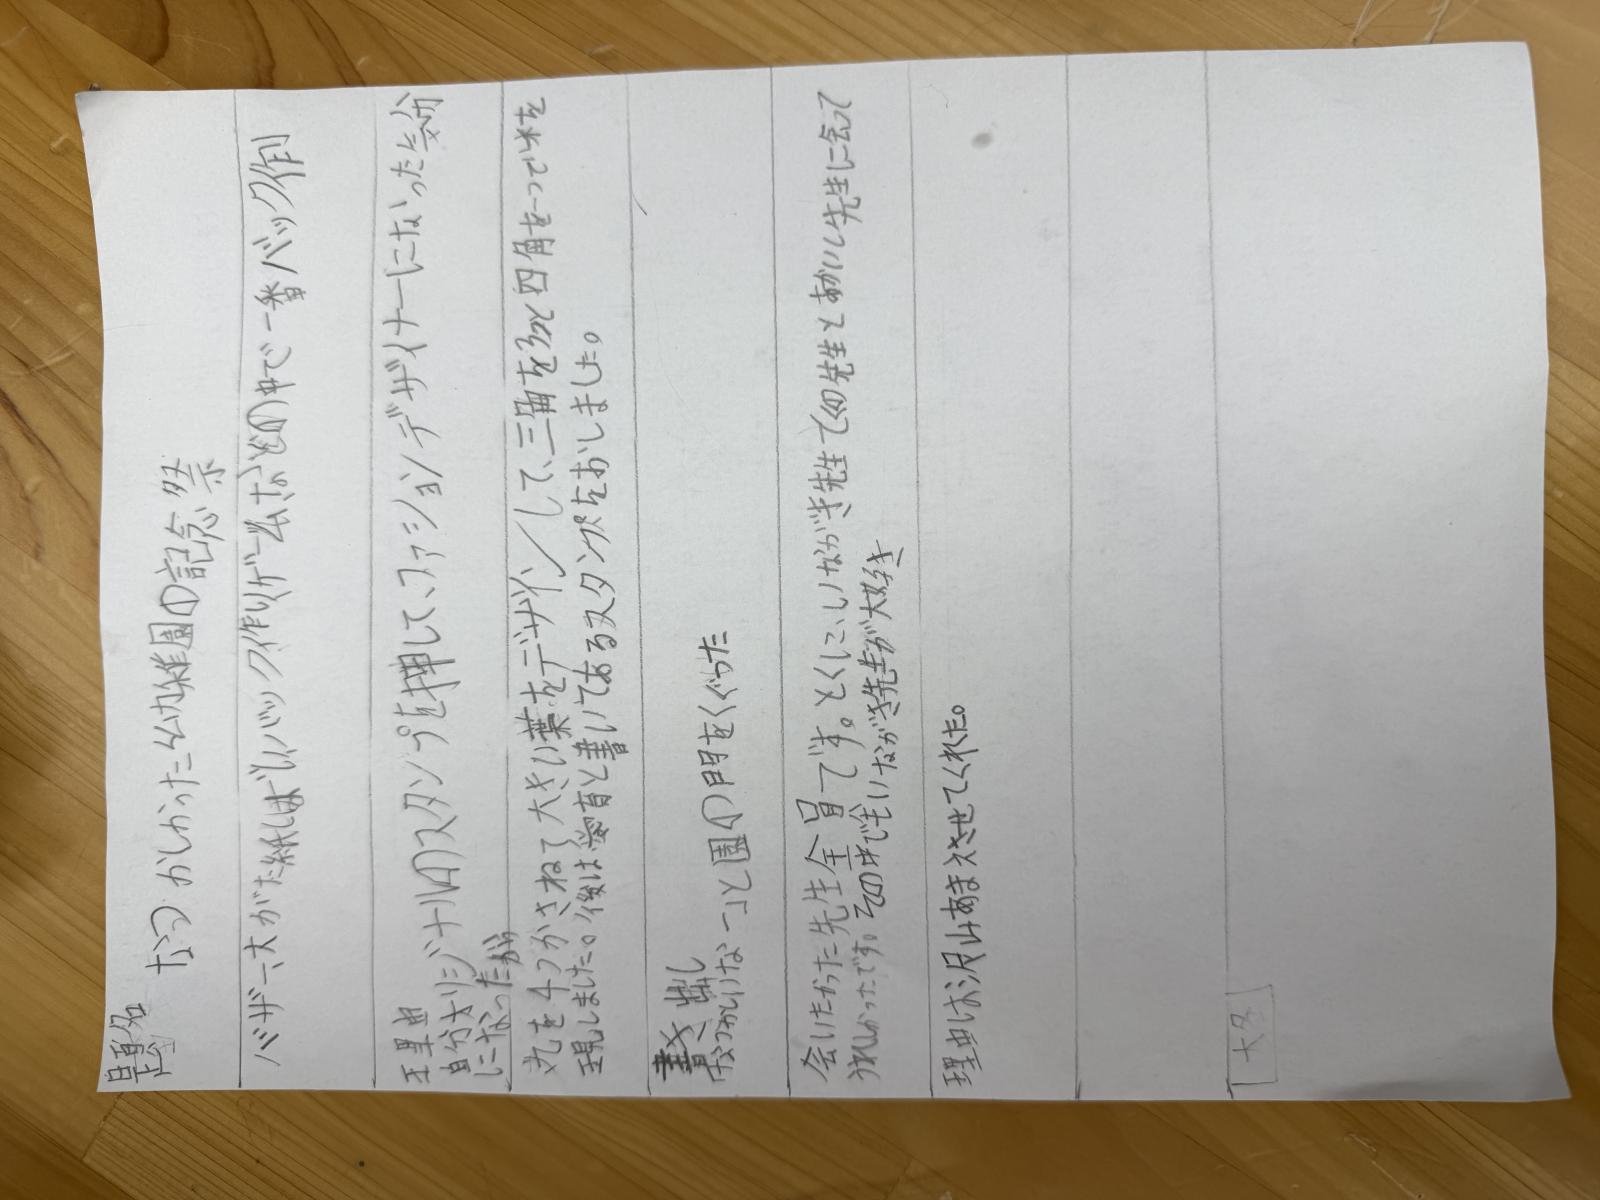 題名
なつかしかった幼稚園の記念祭
バザー、大がた紙しばい、バック作り、ゲームなどの中で一番バック作り
理由
自分オリジナルのスタンプを押して、ファションデザイナーになった気分
になったから
丸を4つかさねて大きい葉をデザインして、三角を 四角をつって木を
表現しました。後は愛育と書いてあるスタンプをおしました。
書き出し
「なつかしいなー」と園の門をくぐった
会いたかった先生全員です。とくに、いながき先生 先生に会って
うれしかったです。その中でもいながき先生が大好き
理由は沢山あまえさせてくれた。